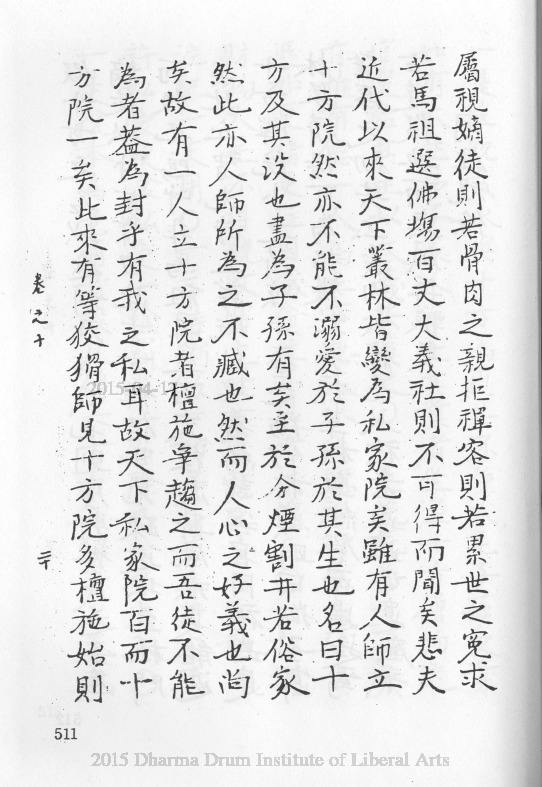 屬視嫡徒則若骨肉之親拒禪客則若累世之冤求
若馬祖選佛場百丈大義社則不可得而聞矣悲夫
近代以來天下叢林皆變為私家院矣雖有人師立
十方院然亦不能不溺愛於子孫於其生也名曰十
方及其沒也盡為子孫有矣至於分煙割井若俗家
然此亦人師所為之不臧也然而人心之好義也尚
矣故有一人立十方院者檀施爭趨之而吾徒不能
為者葢為封乎有我之私耳故天下私家院百而十
方院一矣比來有等狡猾師見十方院多檀施始則
卷之十
三十
511
2015-04-1
2015 Dharma Drum Institute of Liberal Arts